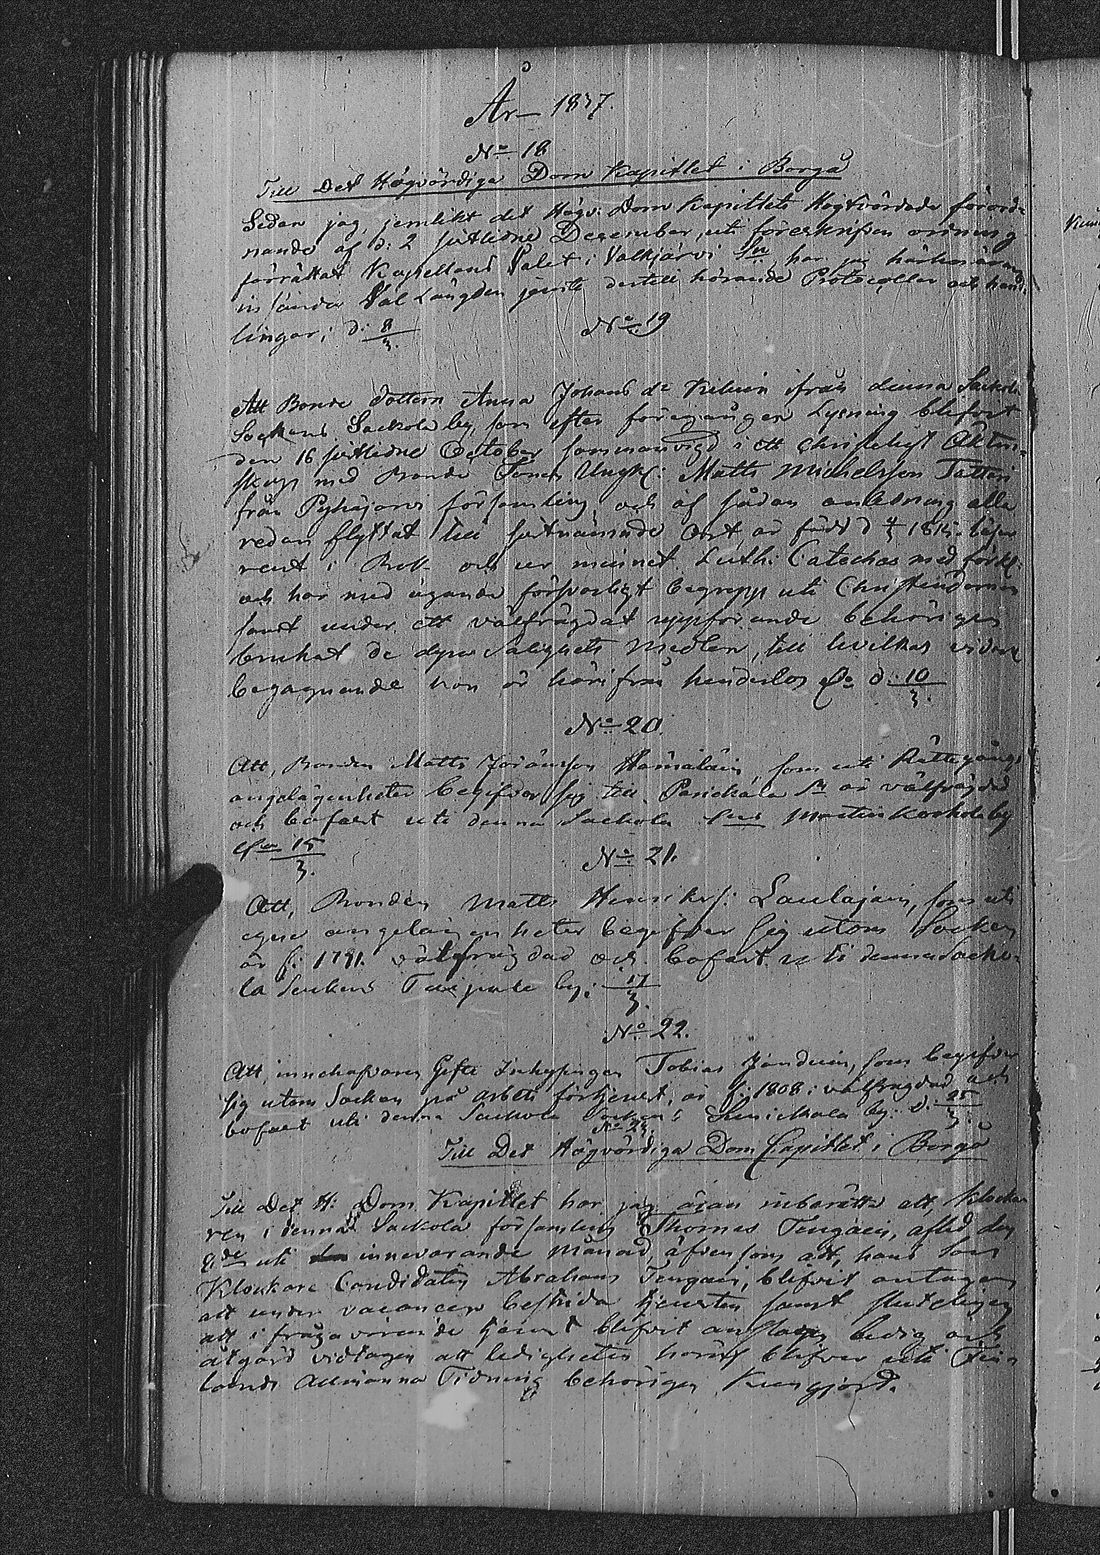 År 1837.
No 18
Till Det Högvördiga Dom Kapitlet i Borgå
Sedan jag, jemlikt det Högv: Dom Kapitlets Högtvördade förord-
nande af d: 2 sistledne December, uti föreskrifven ordning
förrättat Kapellans Valet i Valkjärvi Sn, har jag härhos äran
insända Val Längden jemte dertill hörande Protocoller och hand-
lingar; d: 8/3.
No 19
Att Bonde dottern Anna Johans dr ifrån denna Sackola
Sockens Sackola by, som efter föregången Lysning blifvit
den 16 sistledne October sammanvigd i ett christeligt Äkten-
skap med Bonde Sonen Ungk: Matts Michelsson Tattari
från Pyhäjärvi församling, och af sådan anledning alla
redan flyttat till sistnämnde Ort är född d 4/4 läser
rent i Bok och ur minnet Luth: Cateches med förkl:
och har med ägande försvarligt begrepp uti Christendomen
samt under ett välfrägdat uppförande behörigen
brukat de dyra salighets medlen, till hvilkas vidare
begagnande hon är härifrån hinderlös d: 10/3.
No 20.
Att, Bonden Matts Johansson Hämäläin, som uti Rättegångs
angelägenheter begifver sig till Parickala Sn är välfrägdad
och bofast uti denna Sackola Martinkorhola by
15/3.
No 21.
Att, Bonden Matts Henriks: Laulajain, som uti
egne angelägenheter begifver sig utom Socken
är f: 1791. välfrägdad och bofast uti denna Sacko-
la Sockens by; 17/3.
No 22.
Att, innehafvaren Gifte Tobias som begifver
sig utom Socken på arbets förtjenst, är f: 1808: välfrägdad och
bofast uti denna Sackola Sockens by: d: 25/3.
No 23
Till Det Högvördiga Dom Capitlet i Borgå
Till Det H: Dom Kapitlet har jag äran inberätta att, Klocka-
ren i denna Sackola församling Thomas Tengain, afled den
8de uti innevarande månad, äfvensom att, hans Son
Klockare Candidaten Abraham Tengain, blifvit antagen
att under vacancen bestrida tjensten samt sluteligen
att i fråga varende tjenst blifvit anslagen ledig och
åtgärd vidtagen att ledigheten häraf blifver uti Fin-
lands Allmänna Tidning behörigen Kungjord.